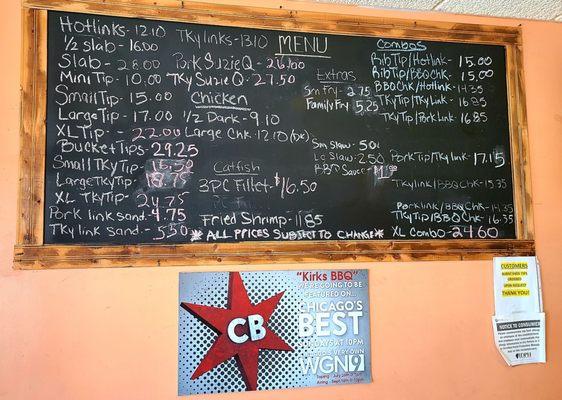 MENU
Hotlinks - 12.10
1/2 Slab - 16.00
Slab - 28.00
Mini Tip - 10.00
Small Tip - 15.00
Large Tip - 17.00
XL Tip - 22.00
Bucket Tips - 29.25
Small TKy Tip
Large TKy Tip
XL TKy Tip - 24.75
Pork link Sand. 4.75
TKy link Sand. - 5.50
TKy links - 13.10
Pork Suzie Q - 26.00
TKy Suzie Q - 27.50
Chicken
1/2 Dark - 9.10
Large Chk - 12.10 (DK)
Catfish
3PC Fillet - $16.50
Fried Shrimp - 11.85
*All Prices Subject to Change*
Extras
Sm Fry - 2.75
Family Fry 5.25
Sm Slaw - .50
Lg Slaw - 2.50
BBQ Sauce
Combos
Rib Tip/Hotlink - 15.00
Rib Tip/BBQ Chk - 15.00
BBQ Chk/Hotlink - 14.35
TKy Tip/TKy link - 16.85
TKy Tip/Pork Link 16.85
Pork Tip/TKy link - 17.15
TKy link/BBQ Chk - 15.35
Pork link/BBQ Chk - 14.35
TKy Tip/BBQ Chk - 16.35
XL Combo - 24.60
"Kirks BBQ"
WE'RE GOING TO BE
FEATURED ON...
CHICAGO'S
BEST
CB
WGN 9
CUSTOMERS
THANK YOU!
NOTICE TO CONSUMERS